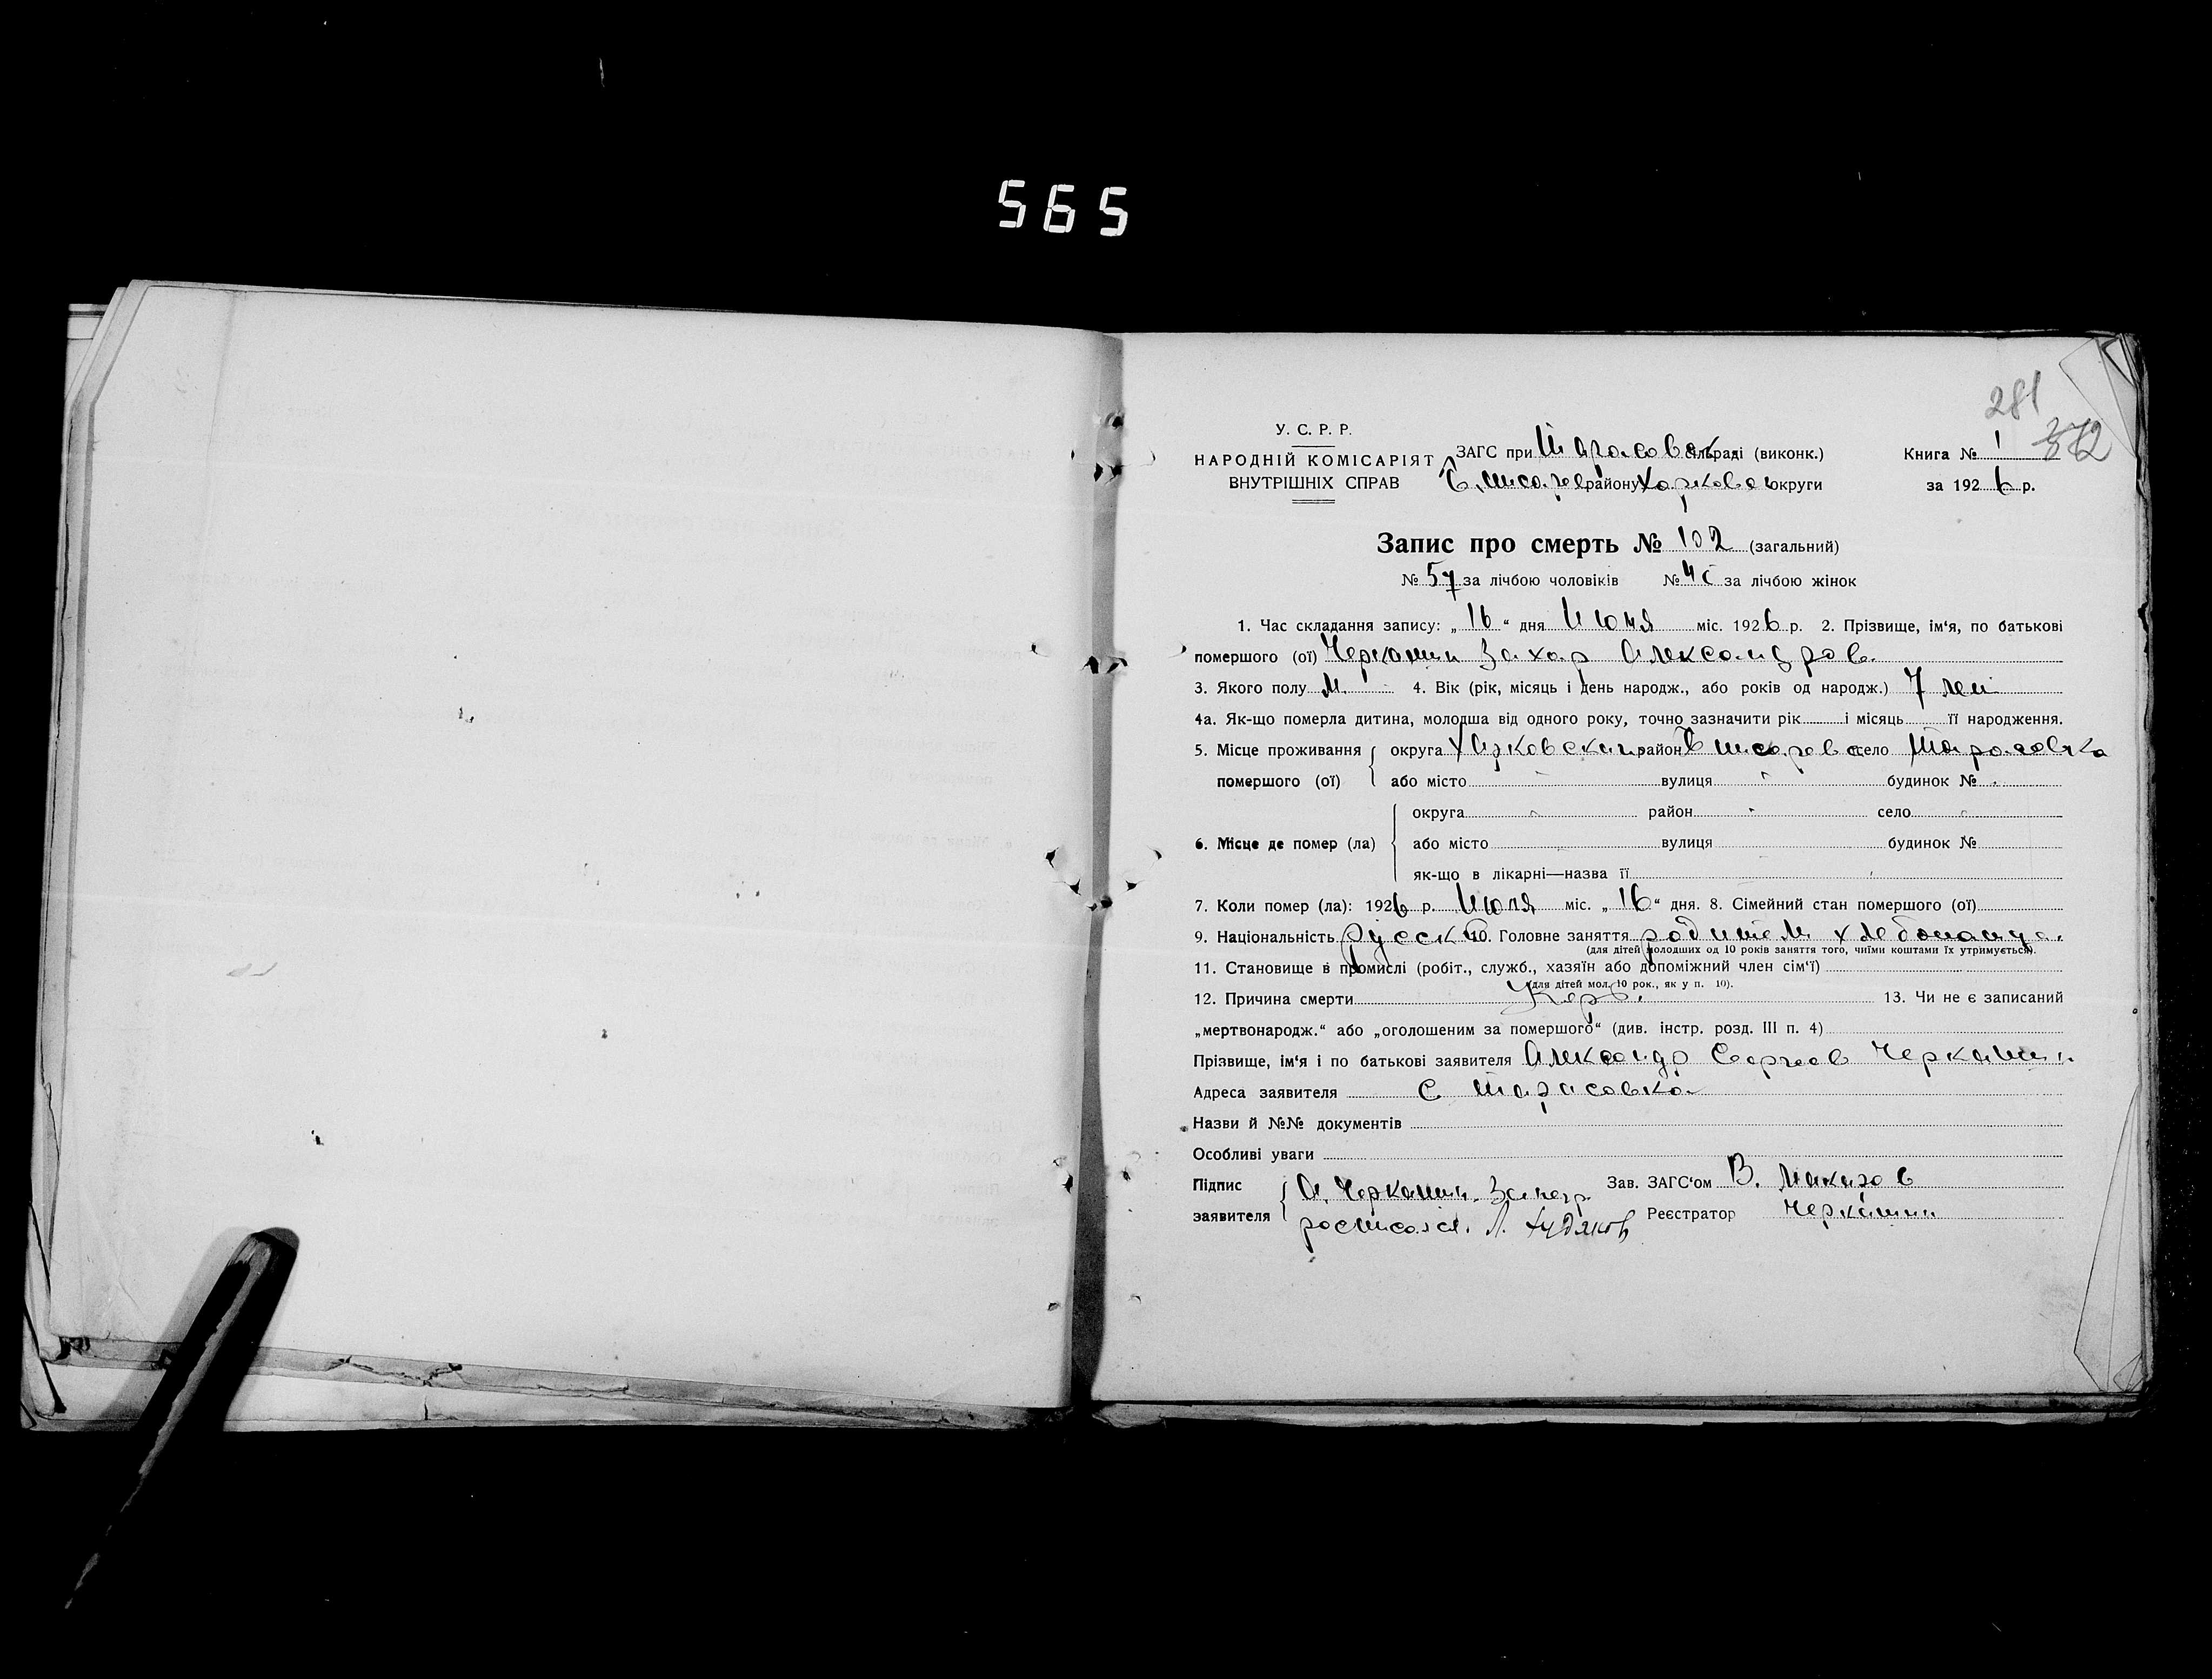 565
281
372
У. С. Р. Р.
НАРОДНІЙ КОМІСАРІЯТ
ВНУТРІШНІХ СПРАВ
ЗАГС при Тарасовск. сільраді (виконк.)
району Харковск округи
Книга № 1
за 1926 р.
Запис про смерть № 102 (загальний)
№ 57 за лічбою чоловіків № 45 за лічбою жінок
1. Час складання запису: „16“ дня Июня міс. 1926 р. 2. Прізвище, ім'я, по батькові
помершого (ої) Черкашин Захар Александров.
3. Якого полу М. 4. Вік (рік, місяць і день народж., або років од народж.) 7 лет
4а. Як-що померла дитина, молодша від одного року, точно зазначити рік і місяць її народження.
5. Місце проживання округа Харковский район село Тарасовка
помершого (ої) або місто вулиця будинок №
округа район село
6. Місце де помер (ла) або місто вулиця будинок №
як-що в лікарні—назва її
7. Коли помер (ла): 1926 р. Июля міс. „16“ дня. 8. Сімейний стан помершого (ої)
9. Національність русский 10. Головне заняття родители хлебопашца.
(для дітей молодших од 10 років заняття того, чиїми коштами їх утримується).
11. Становище в промислі (робіт., служб., хазяїн або допоміжний член сім'ї)
(для дітей мол. 10 рок., як у п. 10).
12. Причина смерти 13. Чи не є записаний
„мертвонародж.“ або „оголошеним за помершого“ (див. інстр. розд. III п. 4)
Прізвище, ім'я і по батькові заявителя Александр Сергеев Черкашин
Адреса заявителя С Тарасовка
Назви й №№ документів
Особливі уваги
Підпис А. Черкашин. За негр Зав. ЗАГС'ом В. Макаров
заявителя росписался. Л. Худяков Реєстратор Черкашин